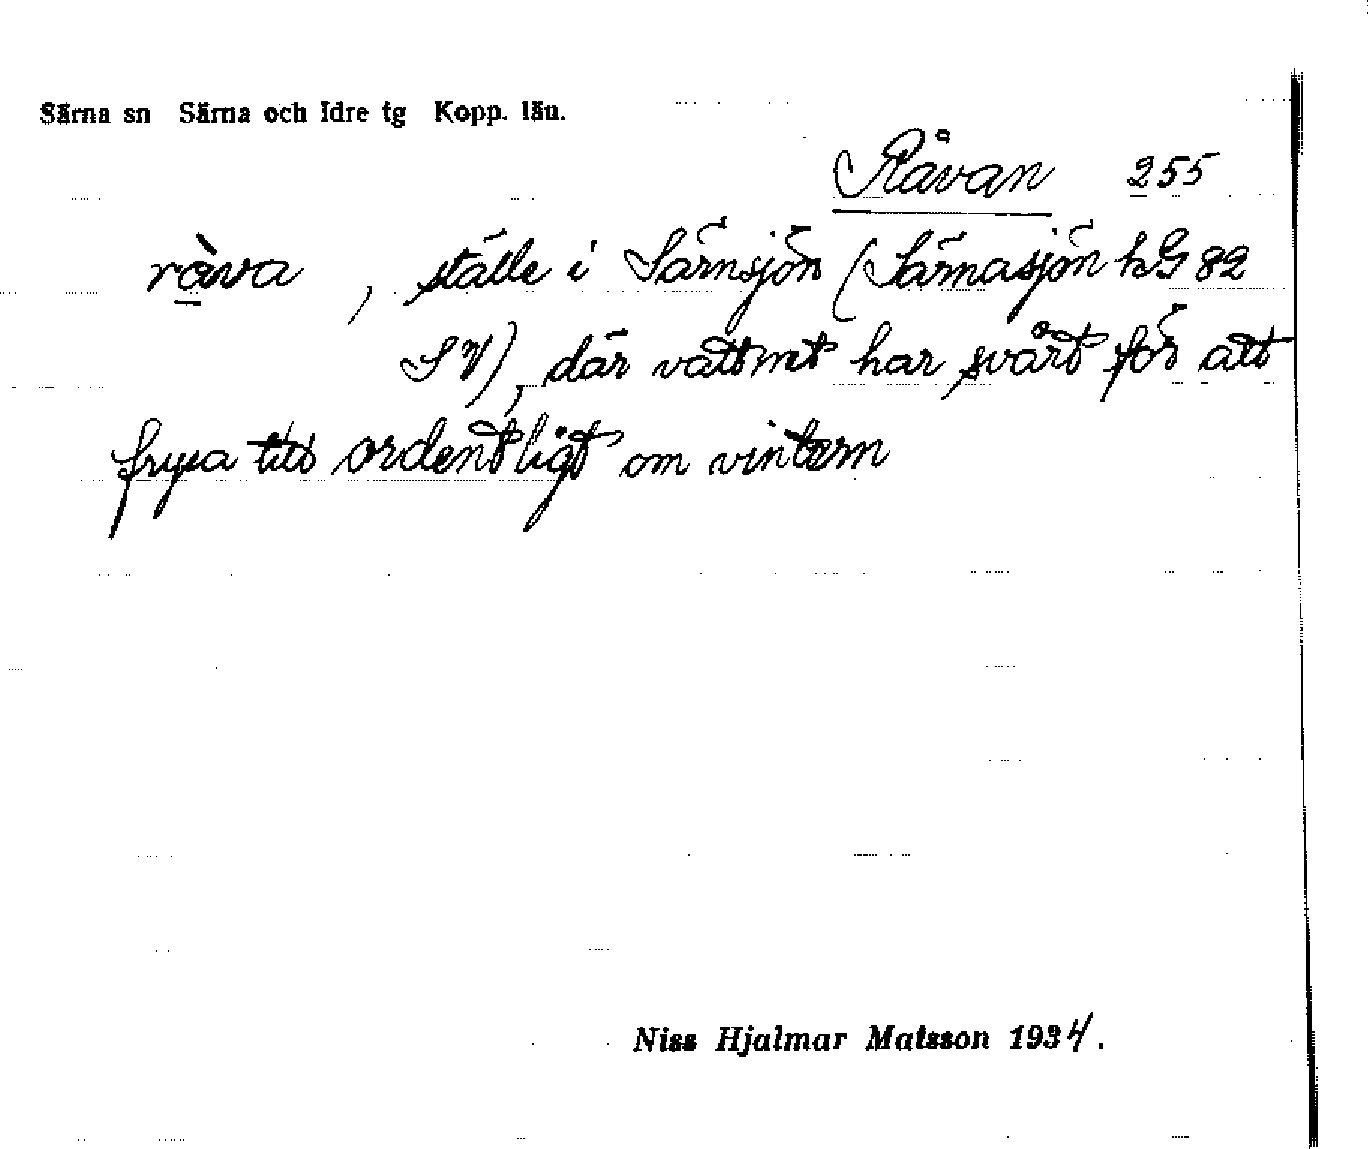 Särna sn Särna och Idre tg Kopp. län.
Råvan 255
ràva , ställe i Särnsjön (Särnasjön hG 82
SV), där vattnet har svårt för att
frysa till ordentligt om vintern
Niss Hjalmar Matsson 1934.